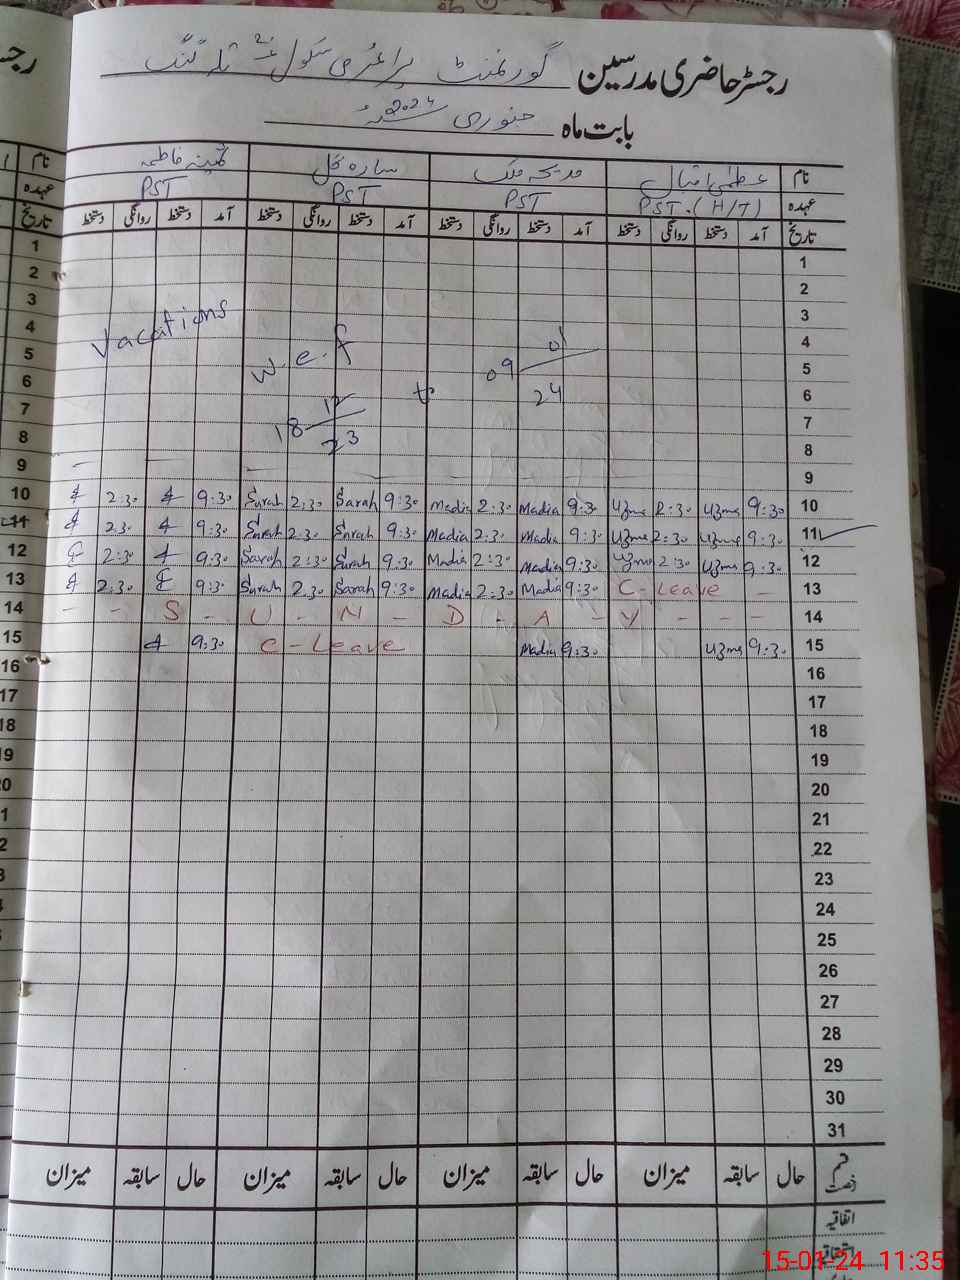 رجسٹر حاضری مدرسین گورنمنٹ پرائمری سکول
بابت ماہ جنوری 2024ء
نام عظمیٰ اقبال مدیحہ ملک سارہ گل ثمینہ فاطمہ نام
عہدہ PST.(H/T) PST PST PST عہدہ
تاریخ آمد دستخط روانگی دستخط آمد دستخط روانگی دستخط آمد دستخط روانگی دستخط آمد دستخط روانگی دستخط تاریخ
1 1
2 2
3 3
4 4
Vacations w.e.f 18/12/23 to 09/01/24
5 5
6 6
7 7
8 8
9 9
10 2:30 9:30 Sarah 2:30 Sarah 9:30 Madia 2:30 Madia 9:30 Uzma 2:30 Uzma 9:30 10
11 2:30 9:30 Sarah 2:30 Sarah 9:30 Madia 2:30 Madia 9:30 Uzma 2:30 Uzma 9:30 11
12 2:30 9:30 Sarah 2:30 Sarah 9:30 Madia 2:30 Madia 9:30 Uzma 2:30 Uzma 9:30 12
13 2:30 9:30 Sarah 2:30 Sarah 9:30 Madia 2:30 Madia 9:30 C-Leave - 13
14 - - S - U - N - D - A - Y - - - 14
15 9:30 C-Leave Madia 9:30 Uzma 9:30 15
16 16
17 17
18 18
19 19
20 20
21
22
23
24
25
26
27
28
29
30
31
قسم رخصت حال سابقہ میزان حال سابقہ میزان حال سابقہ میزان حال سابقہ میزان
اتفاقیہ
استحقاقیہ
15-01-24 11:35